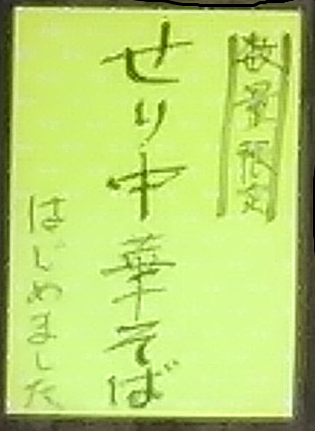 数量限定
せり中華そば
はじめました